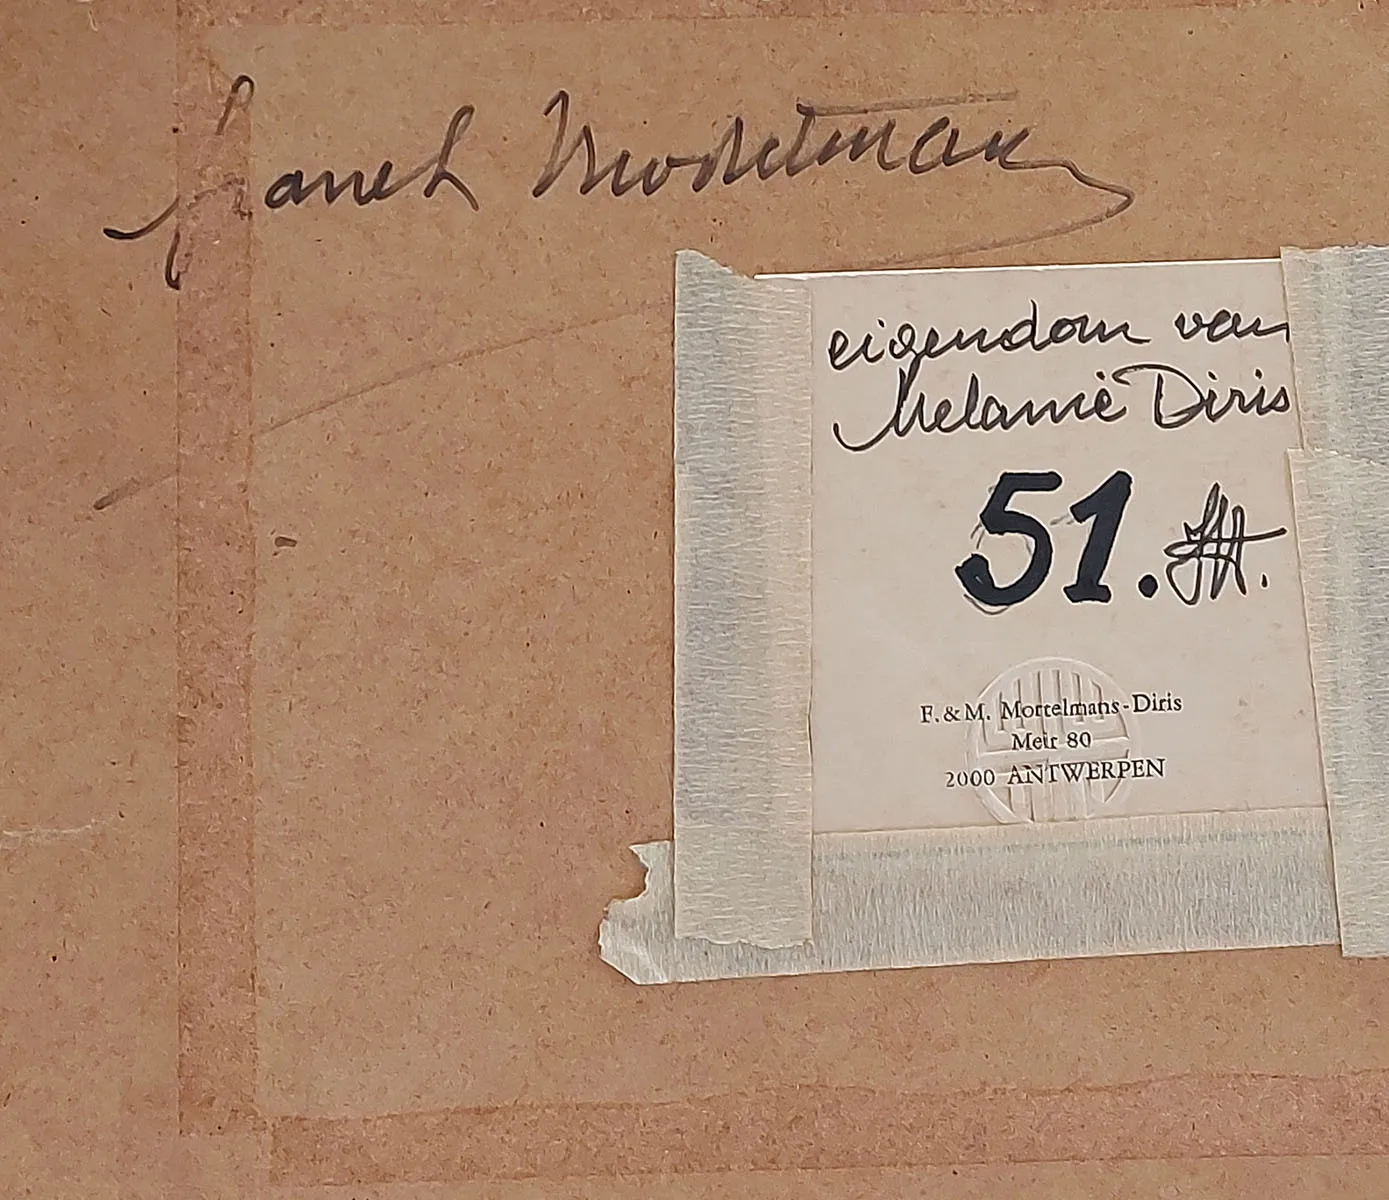 Franck Mortelmans
eigendom van
Melanie Diris
51.
F. & M. Mortelmans-Diris
Meir 80
2000 ANTWERPEN